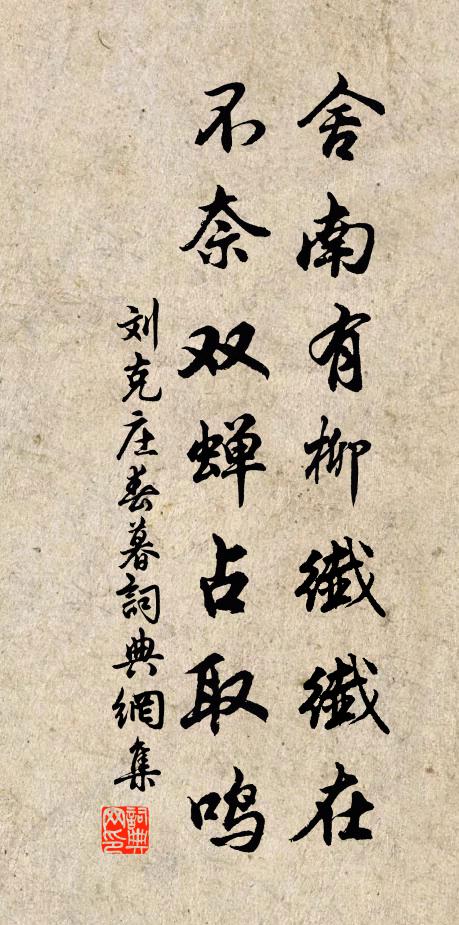 舍南有柳纖纖在
不奈双蝉占取鸣
刘克庄春暮詞典網集
詞典
网印